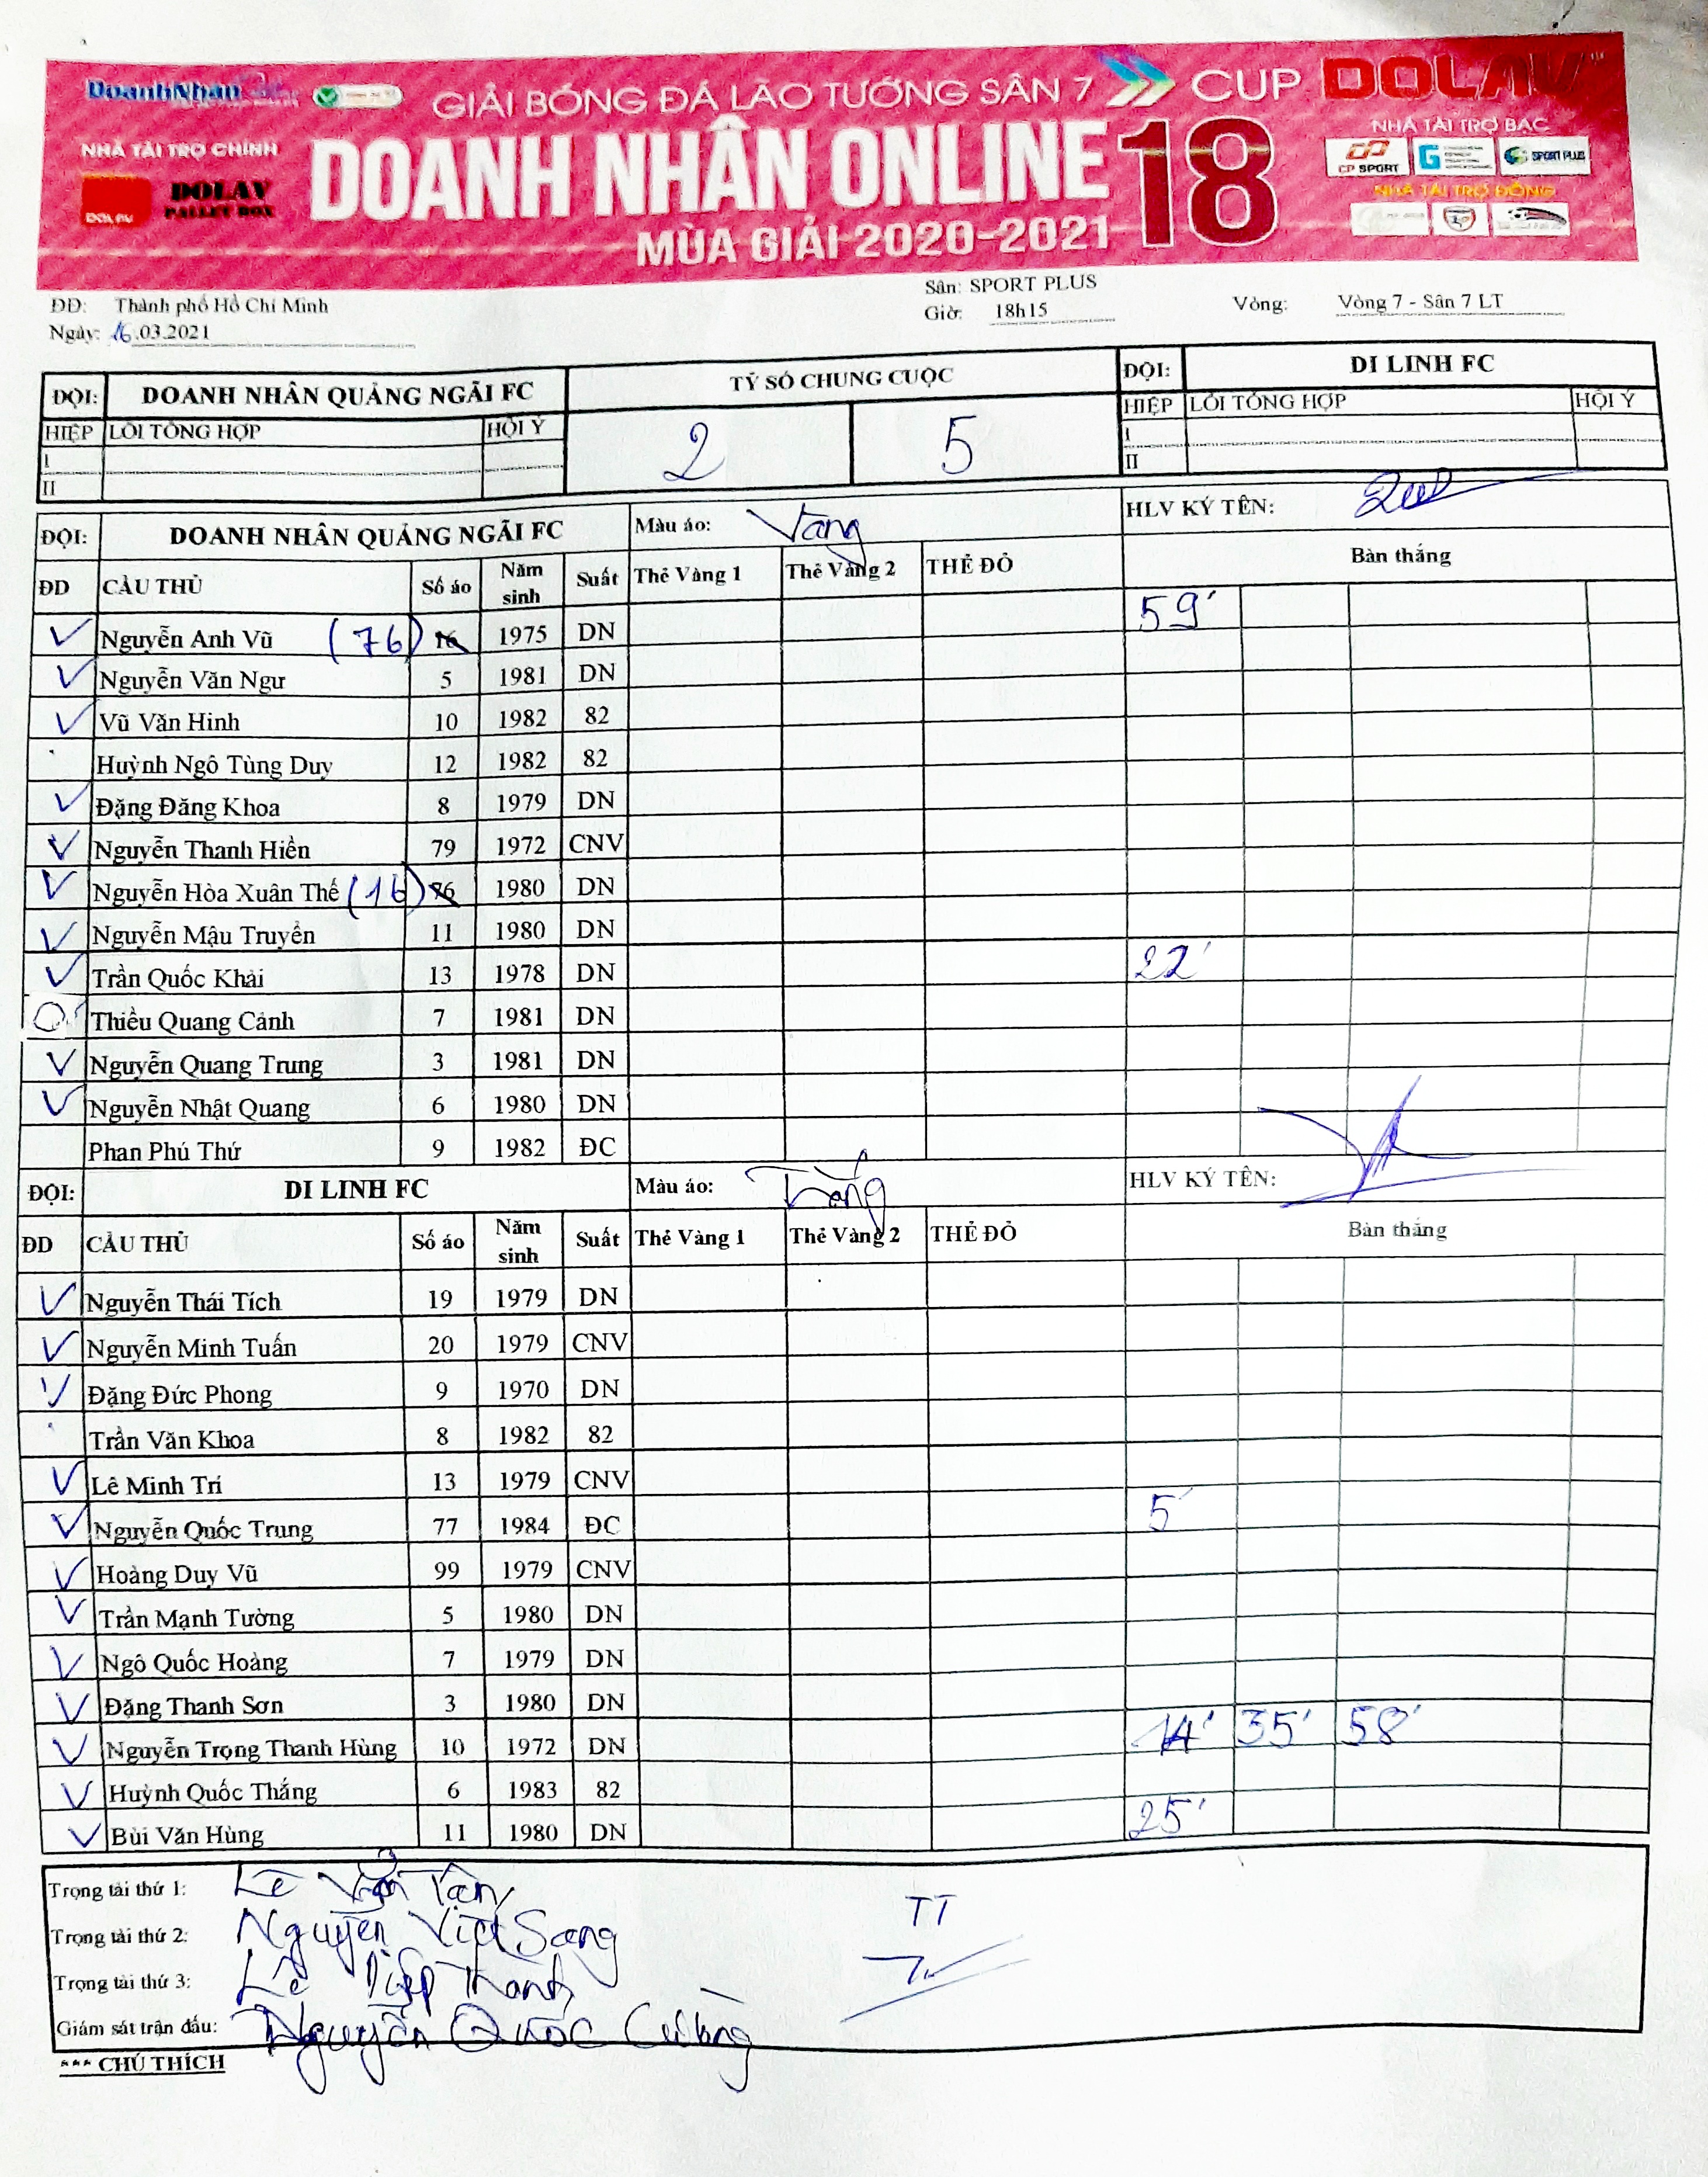 DoanhNhan
GIẢI BÓNG ĐÁ LÃO TƯỚNG SÂN 7 CUP DOLAV
NHÀ TÀI TRỢ CHÍNH
DOLAV
DOLAV
PALLET BOX
DOANH NHÂN ONLINE 18
MÙA GIẢI 2020-2021
NHÀ TÀI TRỢ BẠC
CP SPORT
G
SPORT PLUS
NHÀ TÀI TRỢ ĐỒNG
ĐĐ: Thành phố Hồ Chí Minh
Ngày: 16.03.2021
Sân: SPORT PLUS
Giờ: 18h15
Vòng: Vòng 7 - Sân 7 LT
ĐỘI: DOANH NHÂN QUẢNG NGÃI FC TỶ SỐ CHUNG CUỘC ĐỘI: DI LINH FC
HIỆP LỖI TỔNG HỢP HỘI Ý 2 5 HIỆP LỖI TỔNG HỢP HỘI Ý
I I
II II
ĐỘI: DOANH NHÂN QUẢNG NGÃI FC Màu áo: Vàng HLV KÝ TÊN:
ĐD CẦU THỦ Số áo Năm sinh Suất Thẻ Vàng 1 Thẻ Vàng 2 THẺ ĐỎ Bàn thắng
Nguyễn Anh Vũ (76) 16 1975 DN 59'
Nguyễn Văn Ngư 5 1981 DN
Vũ Văn Hinh 10 1982 82
Huỳnh Ngô Tùng Duy 12 1982 82
Đặng Đăng Khoa 8 1979 DN
Nguyễn Thanh Hiền 79 1972 CNV
Nguyễn Hòa Xuân Thế (16) 76 1980 DN
Nguyễn Mậu Truyền 11 1980 DN
Trần Quốc Khải 13 1978 DN 22'
Thiều Quang Cảnh 7 1981 DN
Nguyễn Quang Trung 3 1981 DN
Nguyễn Nhật Quang 6 1980 DN
Phan Phú Thứ 9 1982 ĐC
ĐỘI: DI LINH FC Màu áo: Trắng HLV KÝ TÊN:
ĐD CẦU THỦ Số áo Năm sinh Suất Thẻ Vàng 1 Thẻ Vàng 2 THẺ ĐỎ Bàn thắng
Nguyễn Thái Tích 19 1979 DN
Nguyễn Minh Tuấn 20 1979 CNV
Đặng Đức Phong 9 1970 DN
Trần Văn Khoa 8 1982 82
Lê Minh Trí 13 1979 CNV
Nguyễn Quốc Trung 77 1984 ĐC 5'
Hoàng Duy Vũ 99 1979 CNV
Trần Mạnh Tường 5 1980 DN
Ngô Quốc Hoàng 7 1979 DN
Đặng Thanh Sơn 3 1980 DN
Nguyễn Trọng Thanh Hùng 10 1972 DN 14' 35' 58'
Huỳnh Quốc Thắng 6 1983 82
Bùi Văn Hùng 11 1980 DN 25'
Trọng tài thứ 1: Lê Văn Tân
Trọng tài thứ 2: Nguyễn Việt Sang
Trọng tài thứ 3: Lê Diệp Thành
Giám sát trận đấu: Nguyễn Quốc Cường
TT
*** CHÚ THÍCH